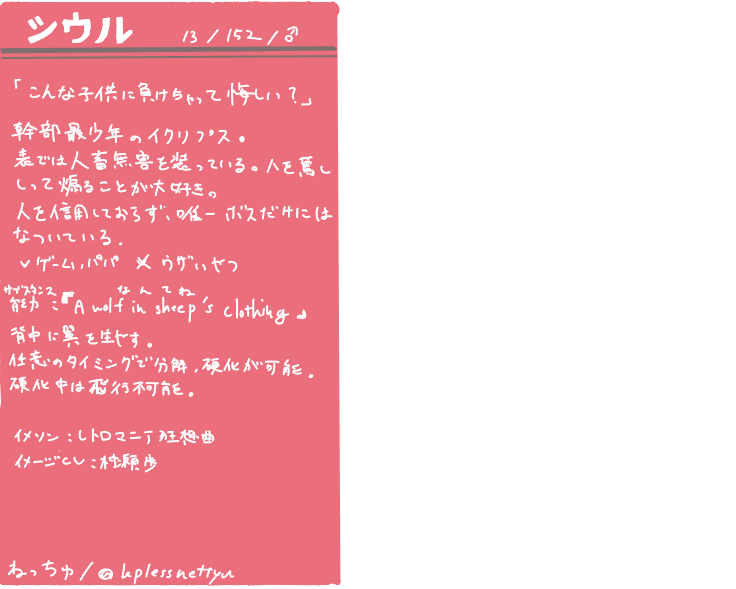 シウル 13/152/♂
「こんな子供に負けちゃって悔しい?」
幹部最少年のイクリプス。
表では人畜無害を装っている。人を罵し
しって煽ることが大好き。
人を信用しておらず、唯一ボスだけには
なついている.
✓ゲーム,パパ ✕ウザいやつ
サブスタンス なんてね
能力:『A wolf in sheep's clothing』
背中に翼を生やす。
任意のタイミングで分解,硬化が可能.
硬化中は飛行不可能.
イメソン:レトロマニア狂想曲
イメージCV:村瀬歩
ねっちゅ/@uplessnettyu